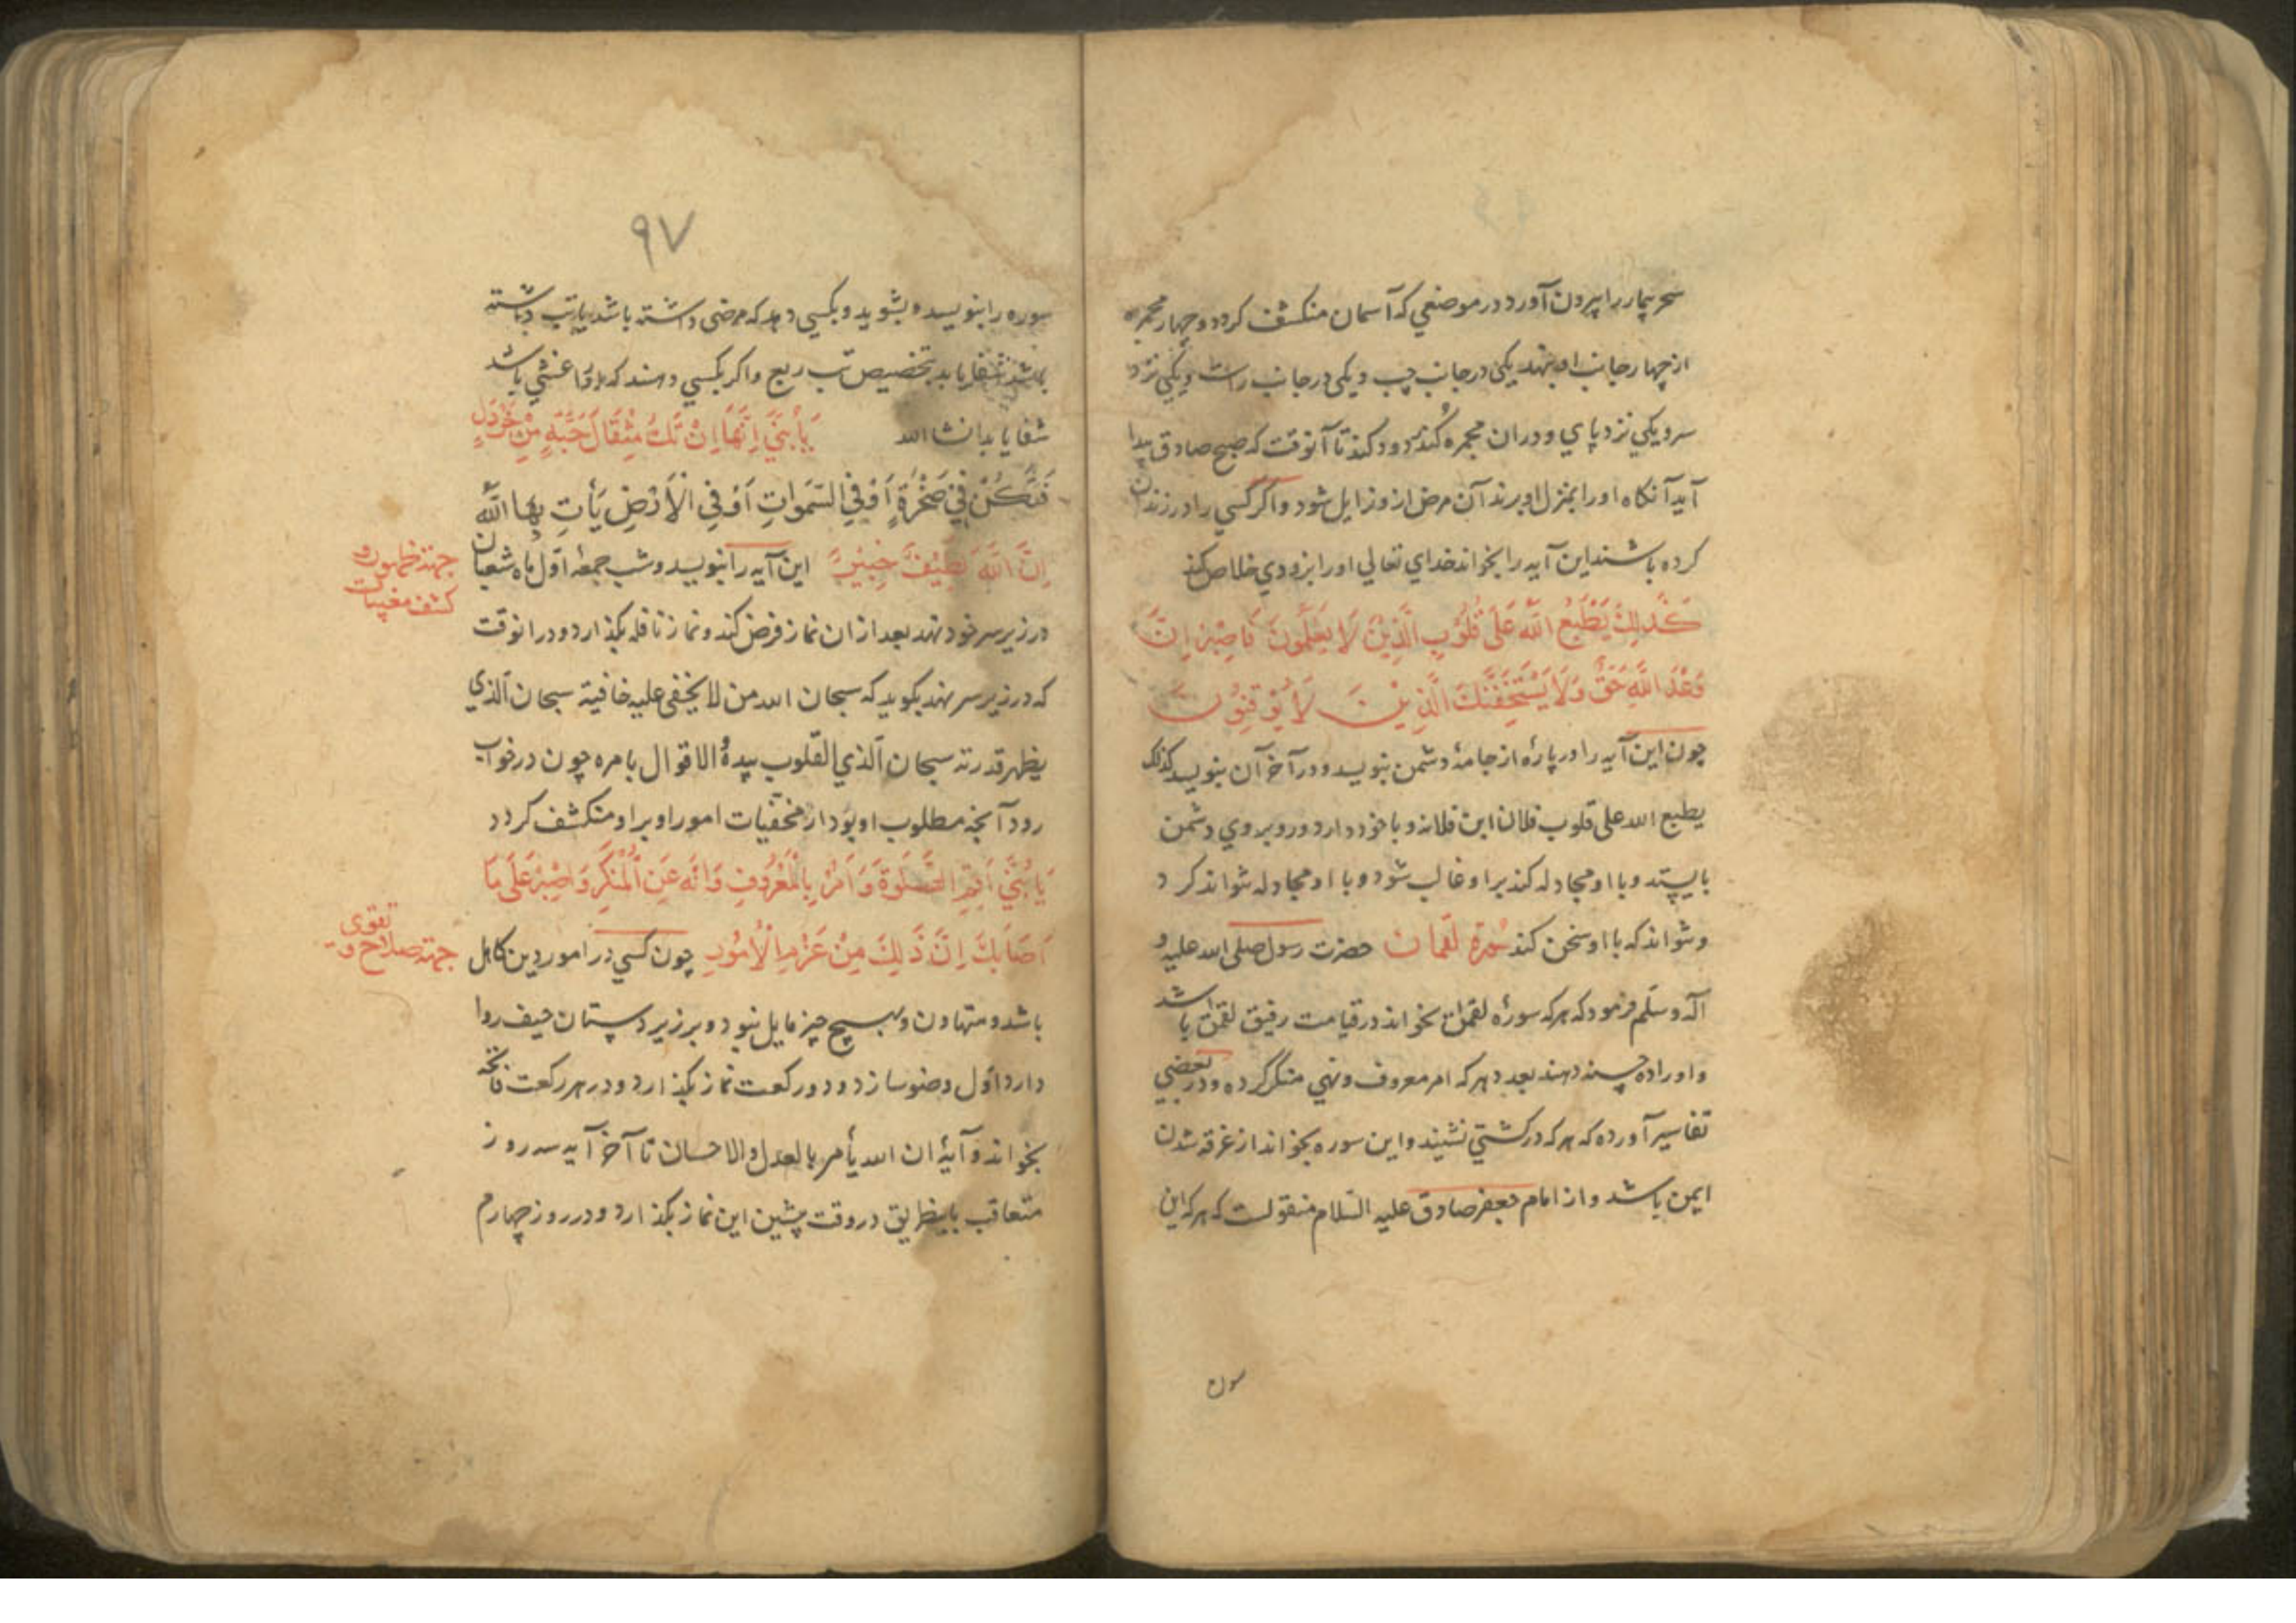 سحر بیمار را بیرون آورد در موضعی که آسمان منکشف کردد و چهار مجمره
از چهار جانب او بنهد یکی در جانب چپ و یکی در جانب راست و یکی نزد
سر و یکی نزد پای و در ان مجمره کندر دود کند تا آنوقت که صبح صادق پیدا
آید آنکاه او را بمنزل او برند آن مرض از و زایل شود و اکر کسی را در زندان
کرده باشند این آیه را بخواند خدای تعالی او را بزودی خلاص کند
كَذَلِكَ يَطْبَعُ اللَّهُ عَلَى قُلُوبِ الَّذِينَ لَا يَعْلَمُونَ فَاصْبِرْ إِنَّ
وَعْدَ اللَّهِ حَقٌّ وَلَا يَسْتَخِفَّنَّكَ الَّذِينَ لَا يُوقِنُونَ
چون این آیه را در پارهٔ از جامهٔ دشمن بنویسد و در آخر آن بنویسد کذلک
یطبع الله علی قلوب فلان ابن فلانه و با خود دارد و روبروی دشمن
بایستد و با او مجادله کند بر او غالب شود و با او مجادله نتواند کرد
و نتواند که با او سخن کند سورة لقمان حضرت رسول صلی الله علیه و
آله و سلّم فرمود که هر که سورهٔ لقمان بخواند در قیامت رفیق لقمان باشد
و او را ده حسنه دهند بعدد هر که امر معروف و نهی منکر کرده و در بعضی
تفاسیر آورده که هر که در کشتی نشیند و این سوره بخواند از غرقه شدن
ایمن باشد و از امام جعفر صادق علیه السّلام منقولست که هر که این
سوره
۹۷
سوره را بنویسد و بشوید و بکسی دهد که مرضی داشته باشد یا تب داشته
باشد شفا یابد بتخصیص تب ربع و اکر بکسی دهند که او را غشی باشد
شفا یابد انشا الله يَا بُنَيَّ إِنَّهَا إِنْ تَكُ مِثْقَالَ حَبَّةٍ مِنْ خَرْدَلٍ
فَتَكُنْ فِي صَخْرَةٍ أَوْ فِي السَّمَوَاتِ أَوْ فِي الْأَرْضِ يَأْتِ بِهَا اللَّهُ
إِنَّ اللَّهَ لَطِيفٌ خَبِيرٌ این آیه را بنویسد و شب جمعهٔ اوّل ماه شعبان
جهة ظهور و
کشف مغیبات
در زیر سر خود نهد بعد از ان نماز فرض کند و نماز نافله بکذارد و در انوقت
که در زیر سر نهد بکوید که سبحان الله من لا یخفی علیه خافیة سبحان الّذی
یظهر قدرته سبحان الّذی القلوب بیدهٔ الاقوال بامره چون در خواب
رود آنچه مطلوب او بود از مخفیّات امور او بر او منکشف کردد
يَا بُنَيَّ أَقِمِ الصَّلَوةَ وَأْمُرْ بِالْمَعْرُوفِ وَانْهَ عَنِ الْمُنْكَرِ وَاصْبِرْ عَلَى مَا
أَصَابَكَ إِنَّ ذَلِكَ مِنْ عَزْمِ الْأُمُورِ چون کسی در امور دین کاهل
جهة صلاح و
تقوی
باشد و متهاون و بهیچ چیز مایل نبود و بر زیر دستان حیف روا
دارد اوّل وضو سازد و دو رکعت نماز بکذارد و در هر رکعت فاتحه
بخواند و آیهٔ ان الله یأمر بالعدل والاحسان تا آخر آیه سه روز
متعاقب باینطریق در وقت پیشین این نماز بکذارد و در روز چهارم